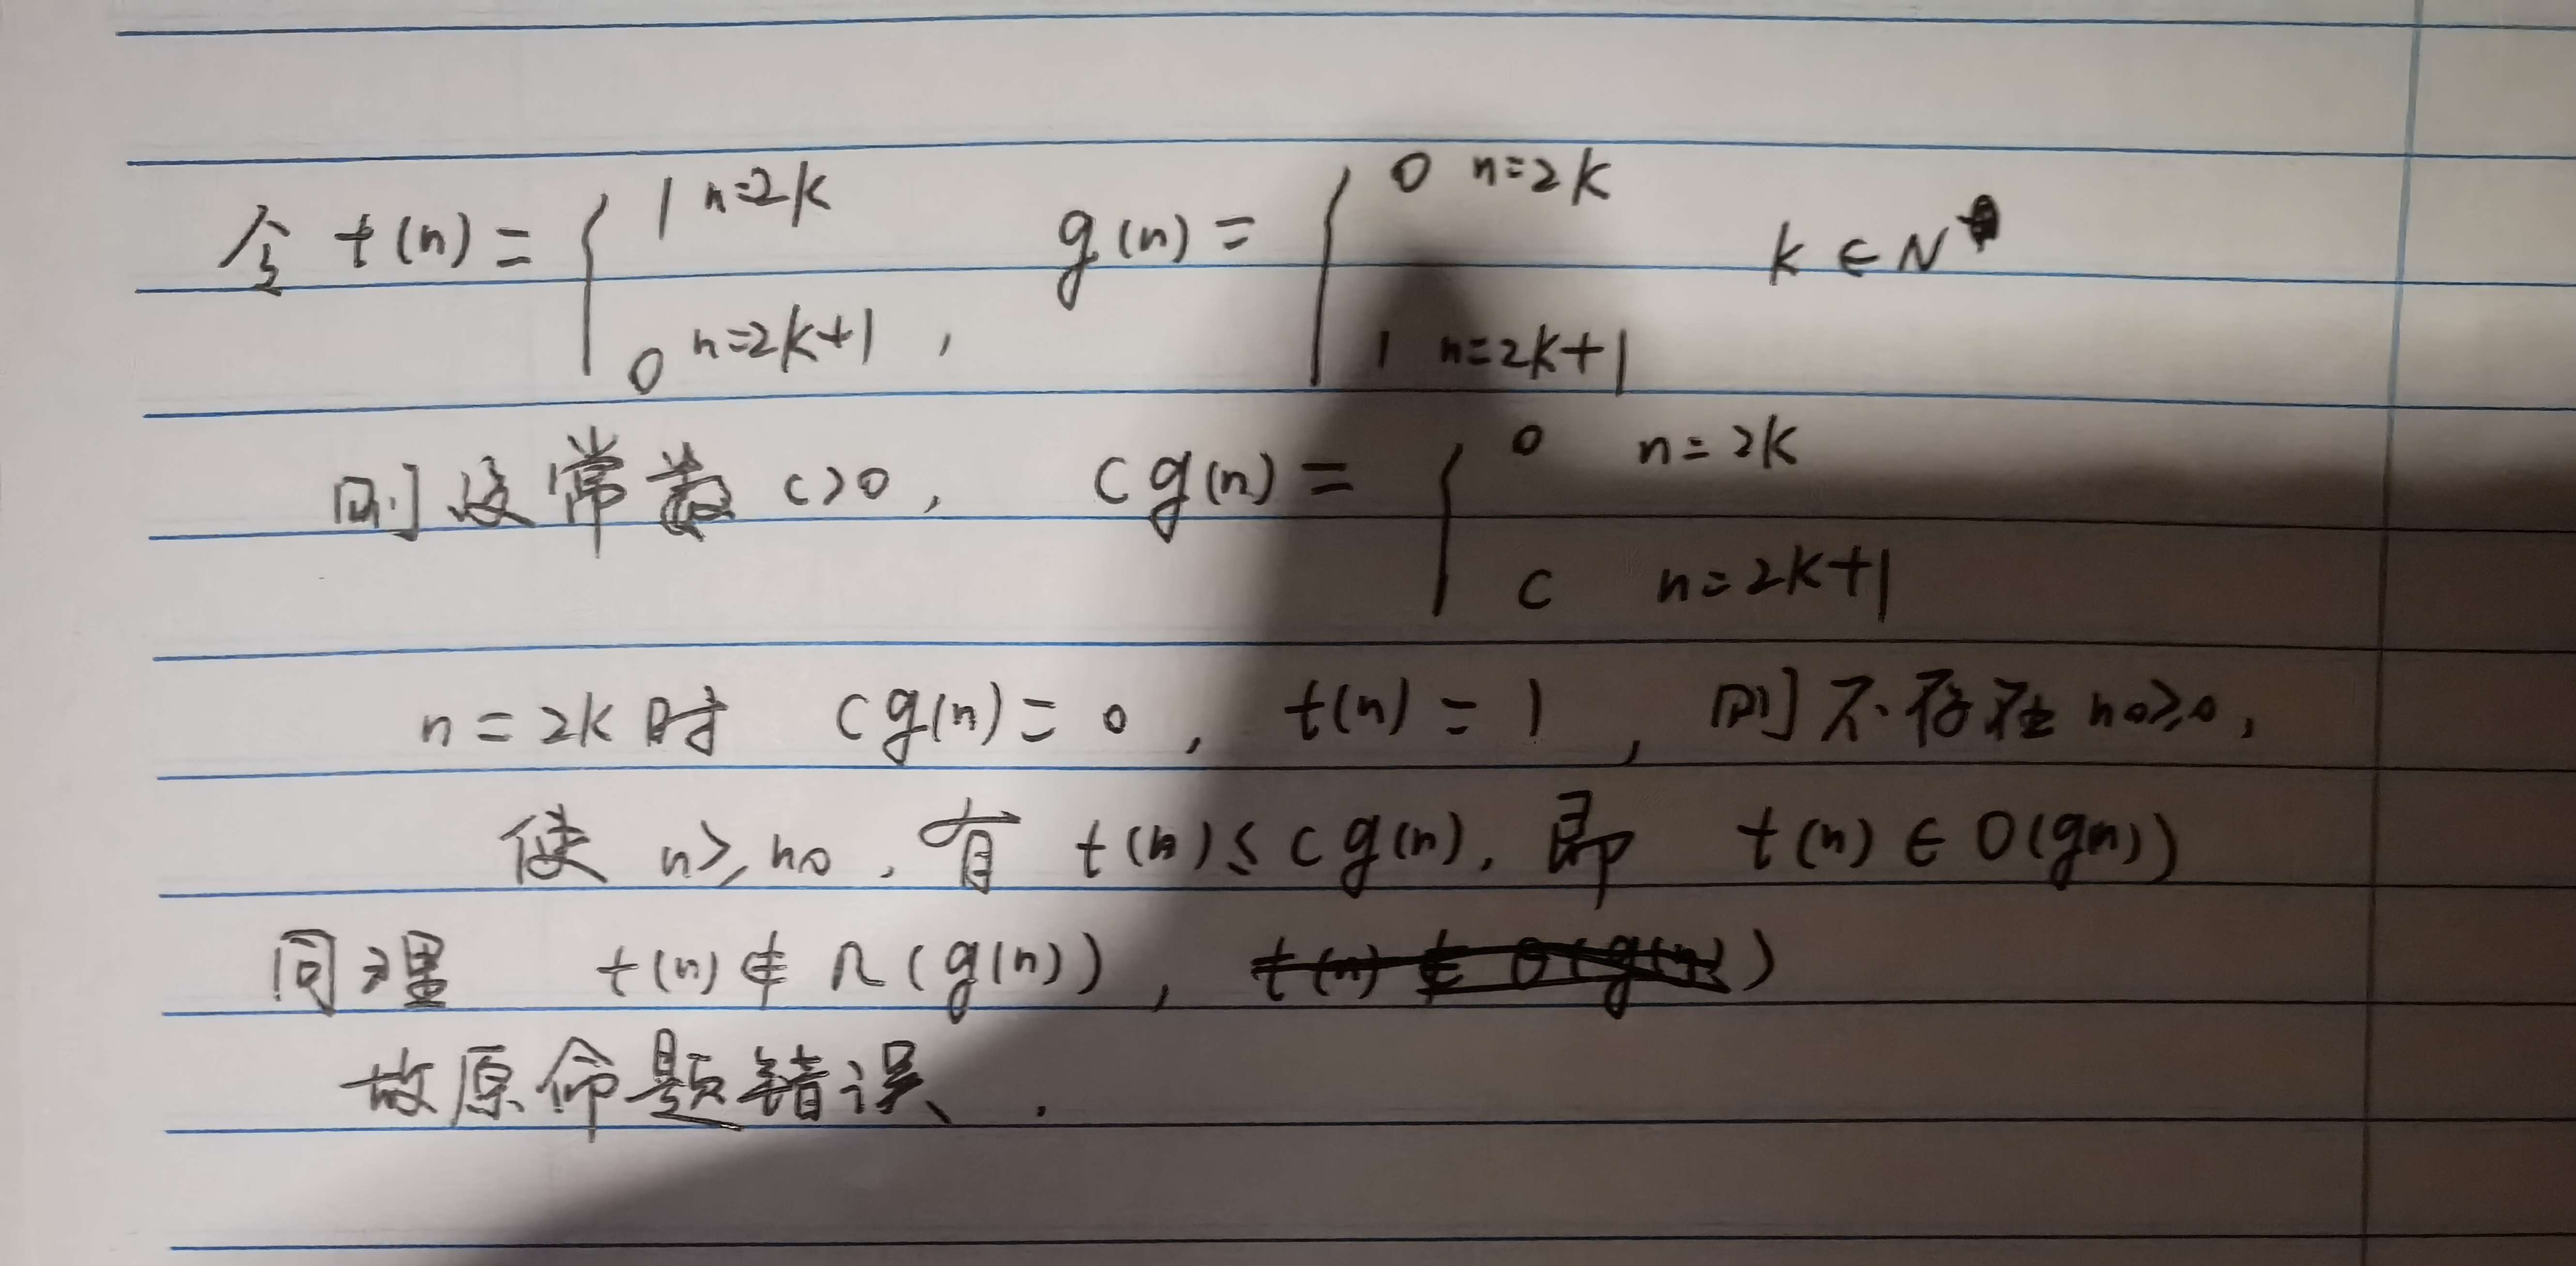 令 t(n) = { 1 n=2k 0 n=2k+1 , g(n) = { 0 n=2k 1 n=2k+1 k ∈ N
则设常数 c>0, cg(n) = { 0 n=2k c n=2k+1
n=2k时 cg(n)=0, t(n)=1, 则不存在 n0≥0,
使 n≥n0, 有 t(n)≤cg(n), 即 t(n) ∈ O(g(n))
同理 t(n) ∉ Ω(g(n)),
故原命题错误.